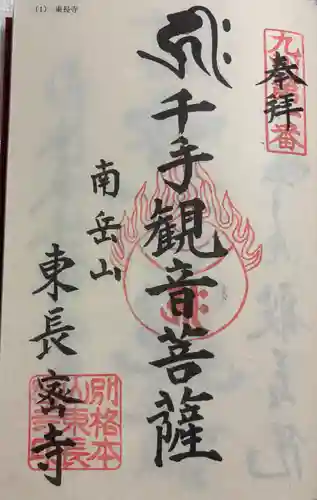 (1) 東長寺
奉拝
千手観音菩薩
南岳山
東長密寺
別格本
山東長